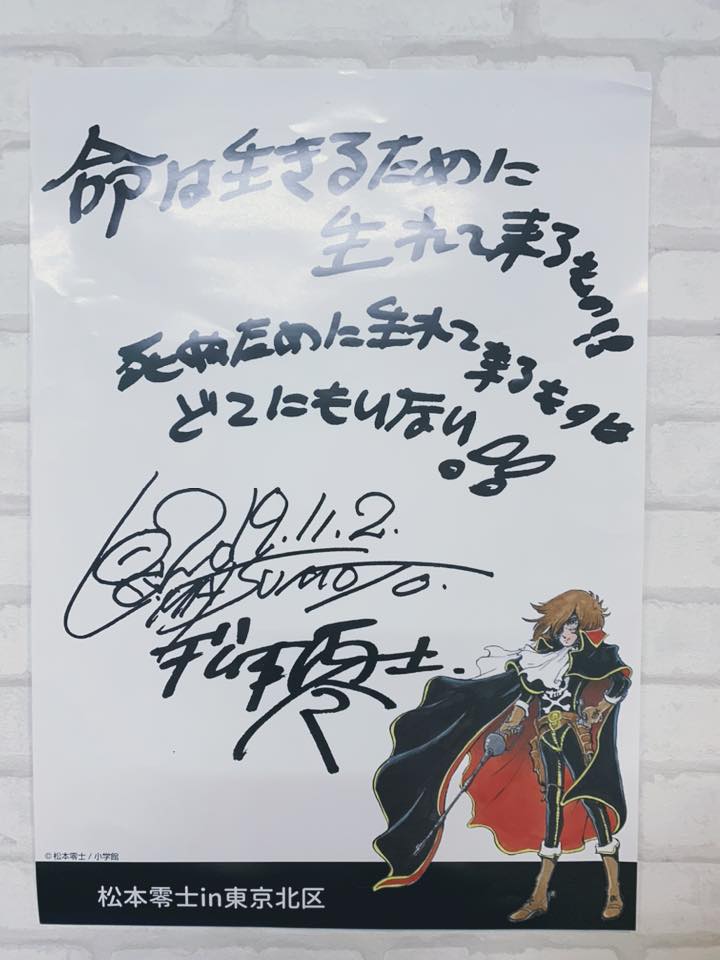 命は生きるために
生れて来るもの!!
死ぬために生れて来るものは
どこにもいない。!!
2019.11.2.
MATSUMOTO
松本零士.
©松本零士 / 小学館
松本零士in東京北区